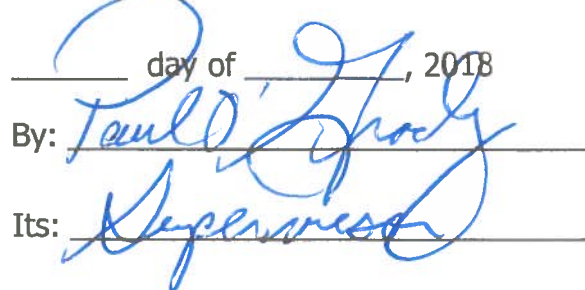 _______ day of __________, 2018
By: Paul O'Grady
Its: Supervisor